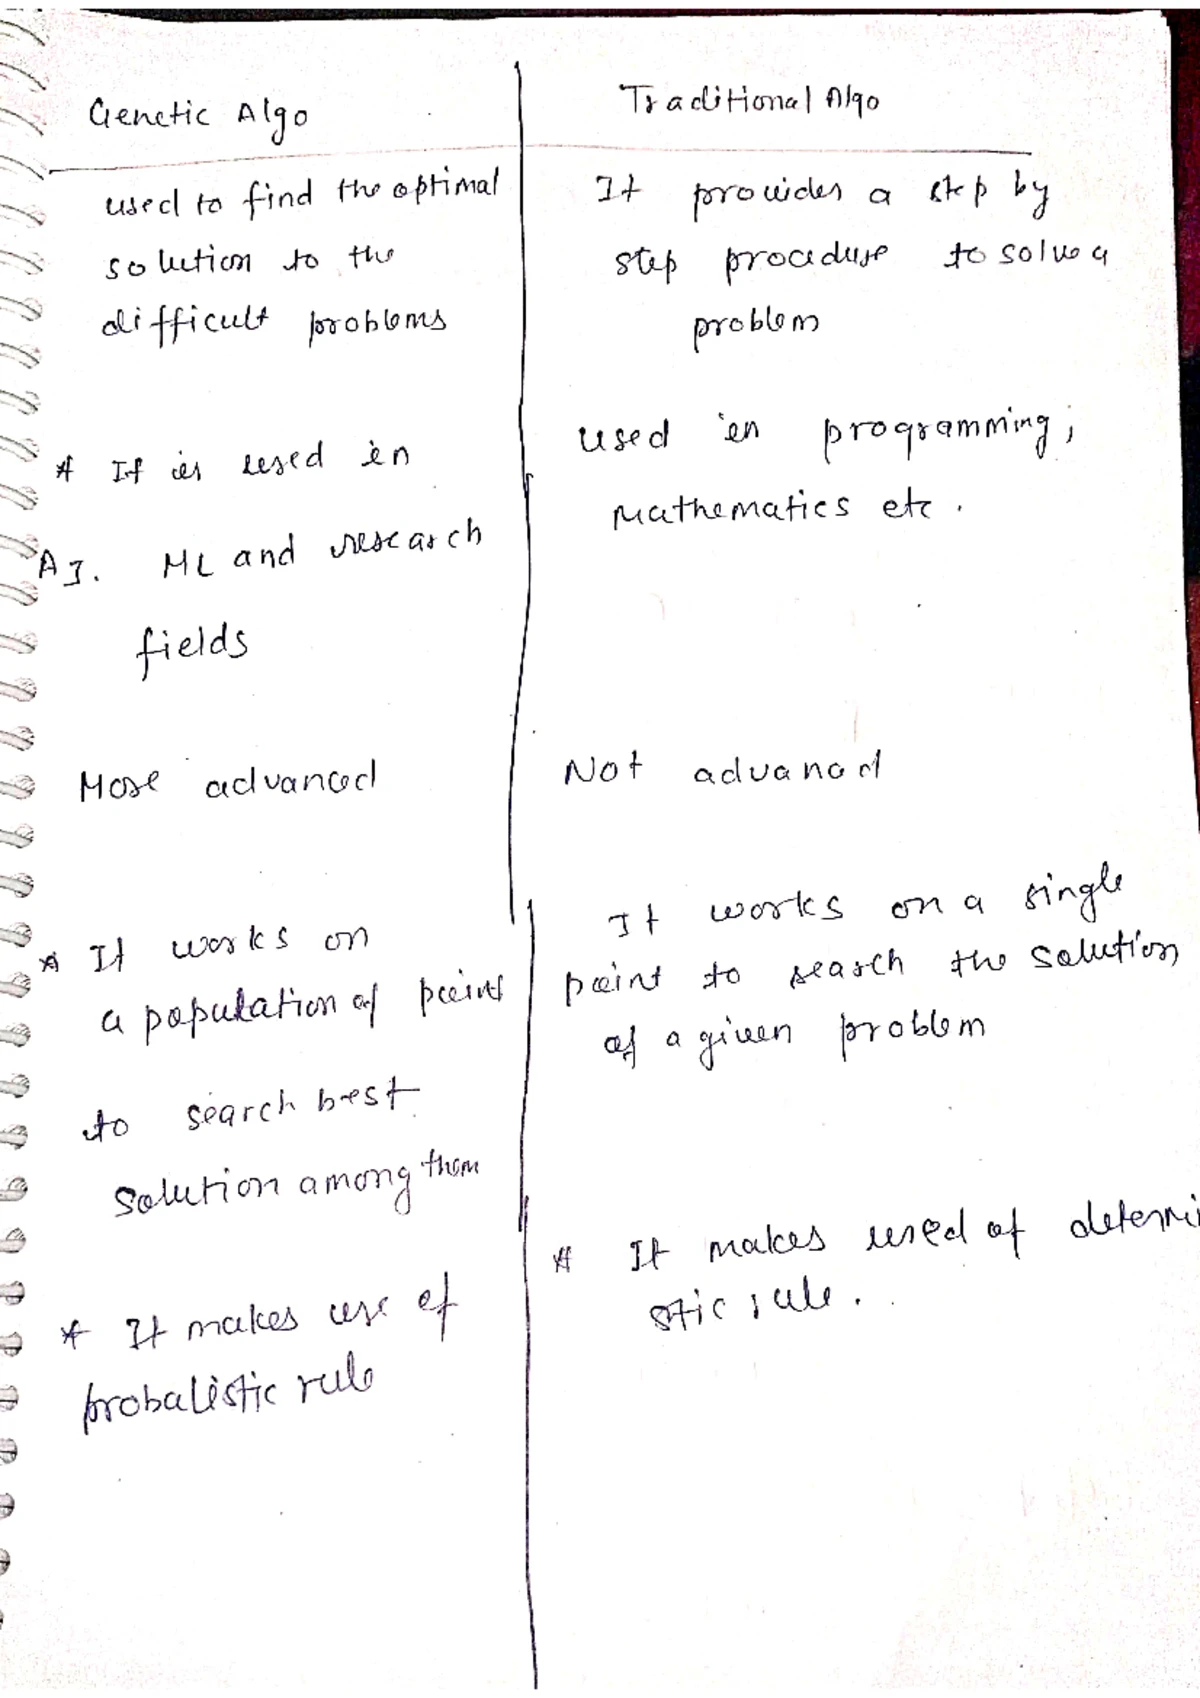 Genetic Algo
used to find the optimal
solution to the
difficult problems
* It is used in
AI. ML and research
fields
More advanced
* It works on
a population of points
to search best
solution among them
* It makes use of
probalistic rule
Traditional Algo
It provides a step by
step procedure to solve a
problem
used in programming,
Mathematics etc.
Not advanced
It works on a single
point to search the solution
of a given problem
* It makes used of determi
stic rule.